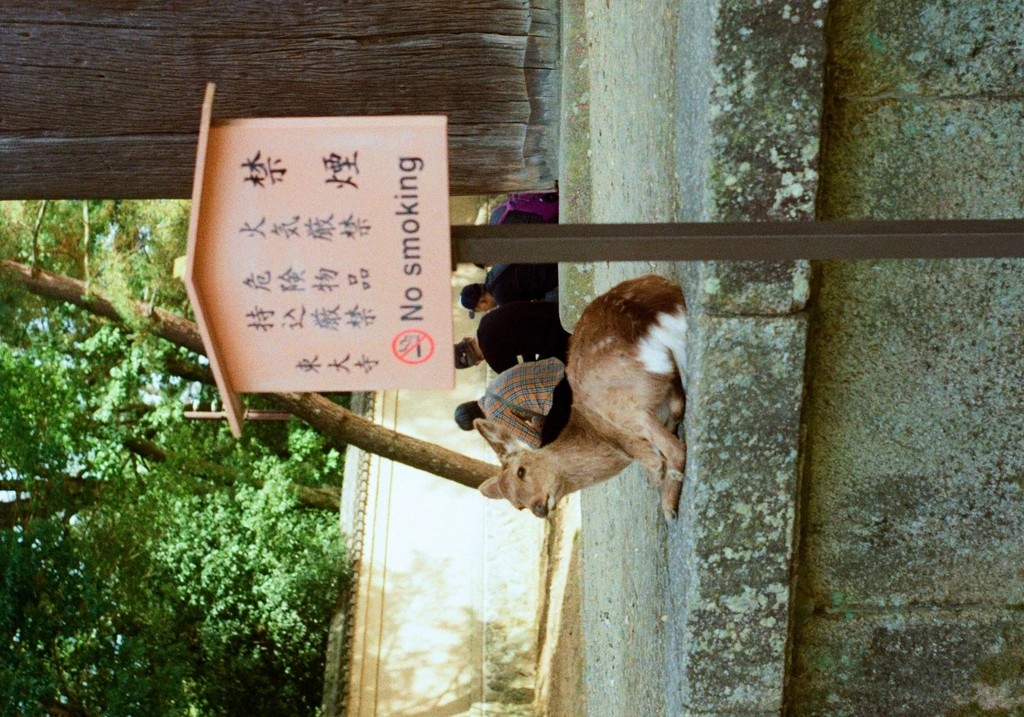 禁煙
火気厳禁
危険物品
持込厳禁
東大寺
No smoking